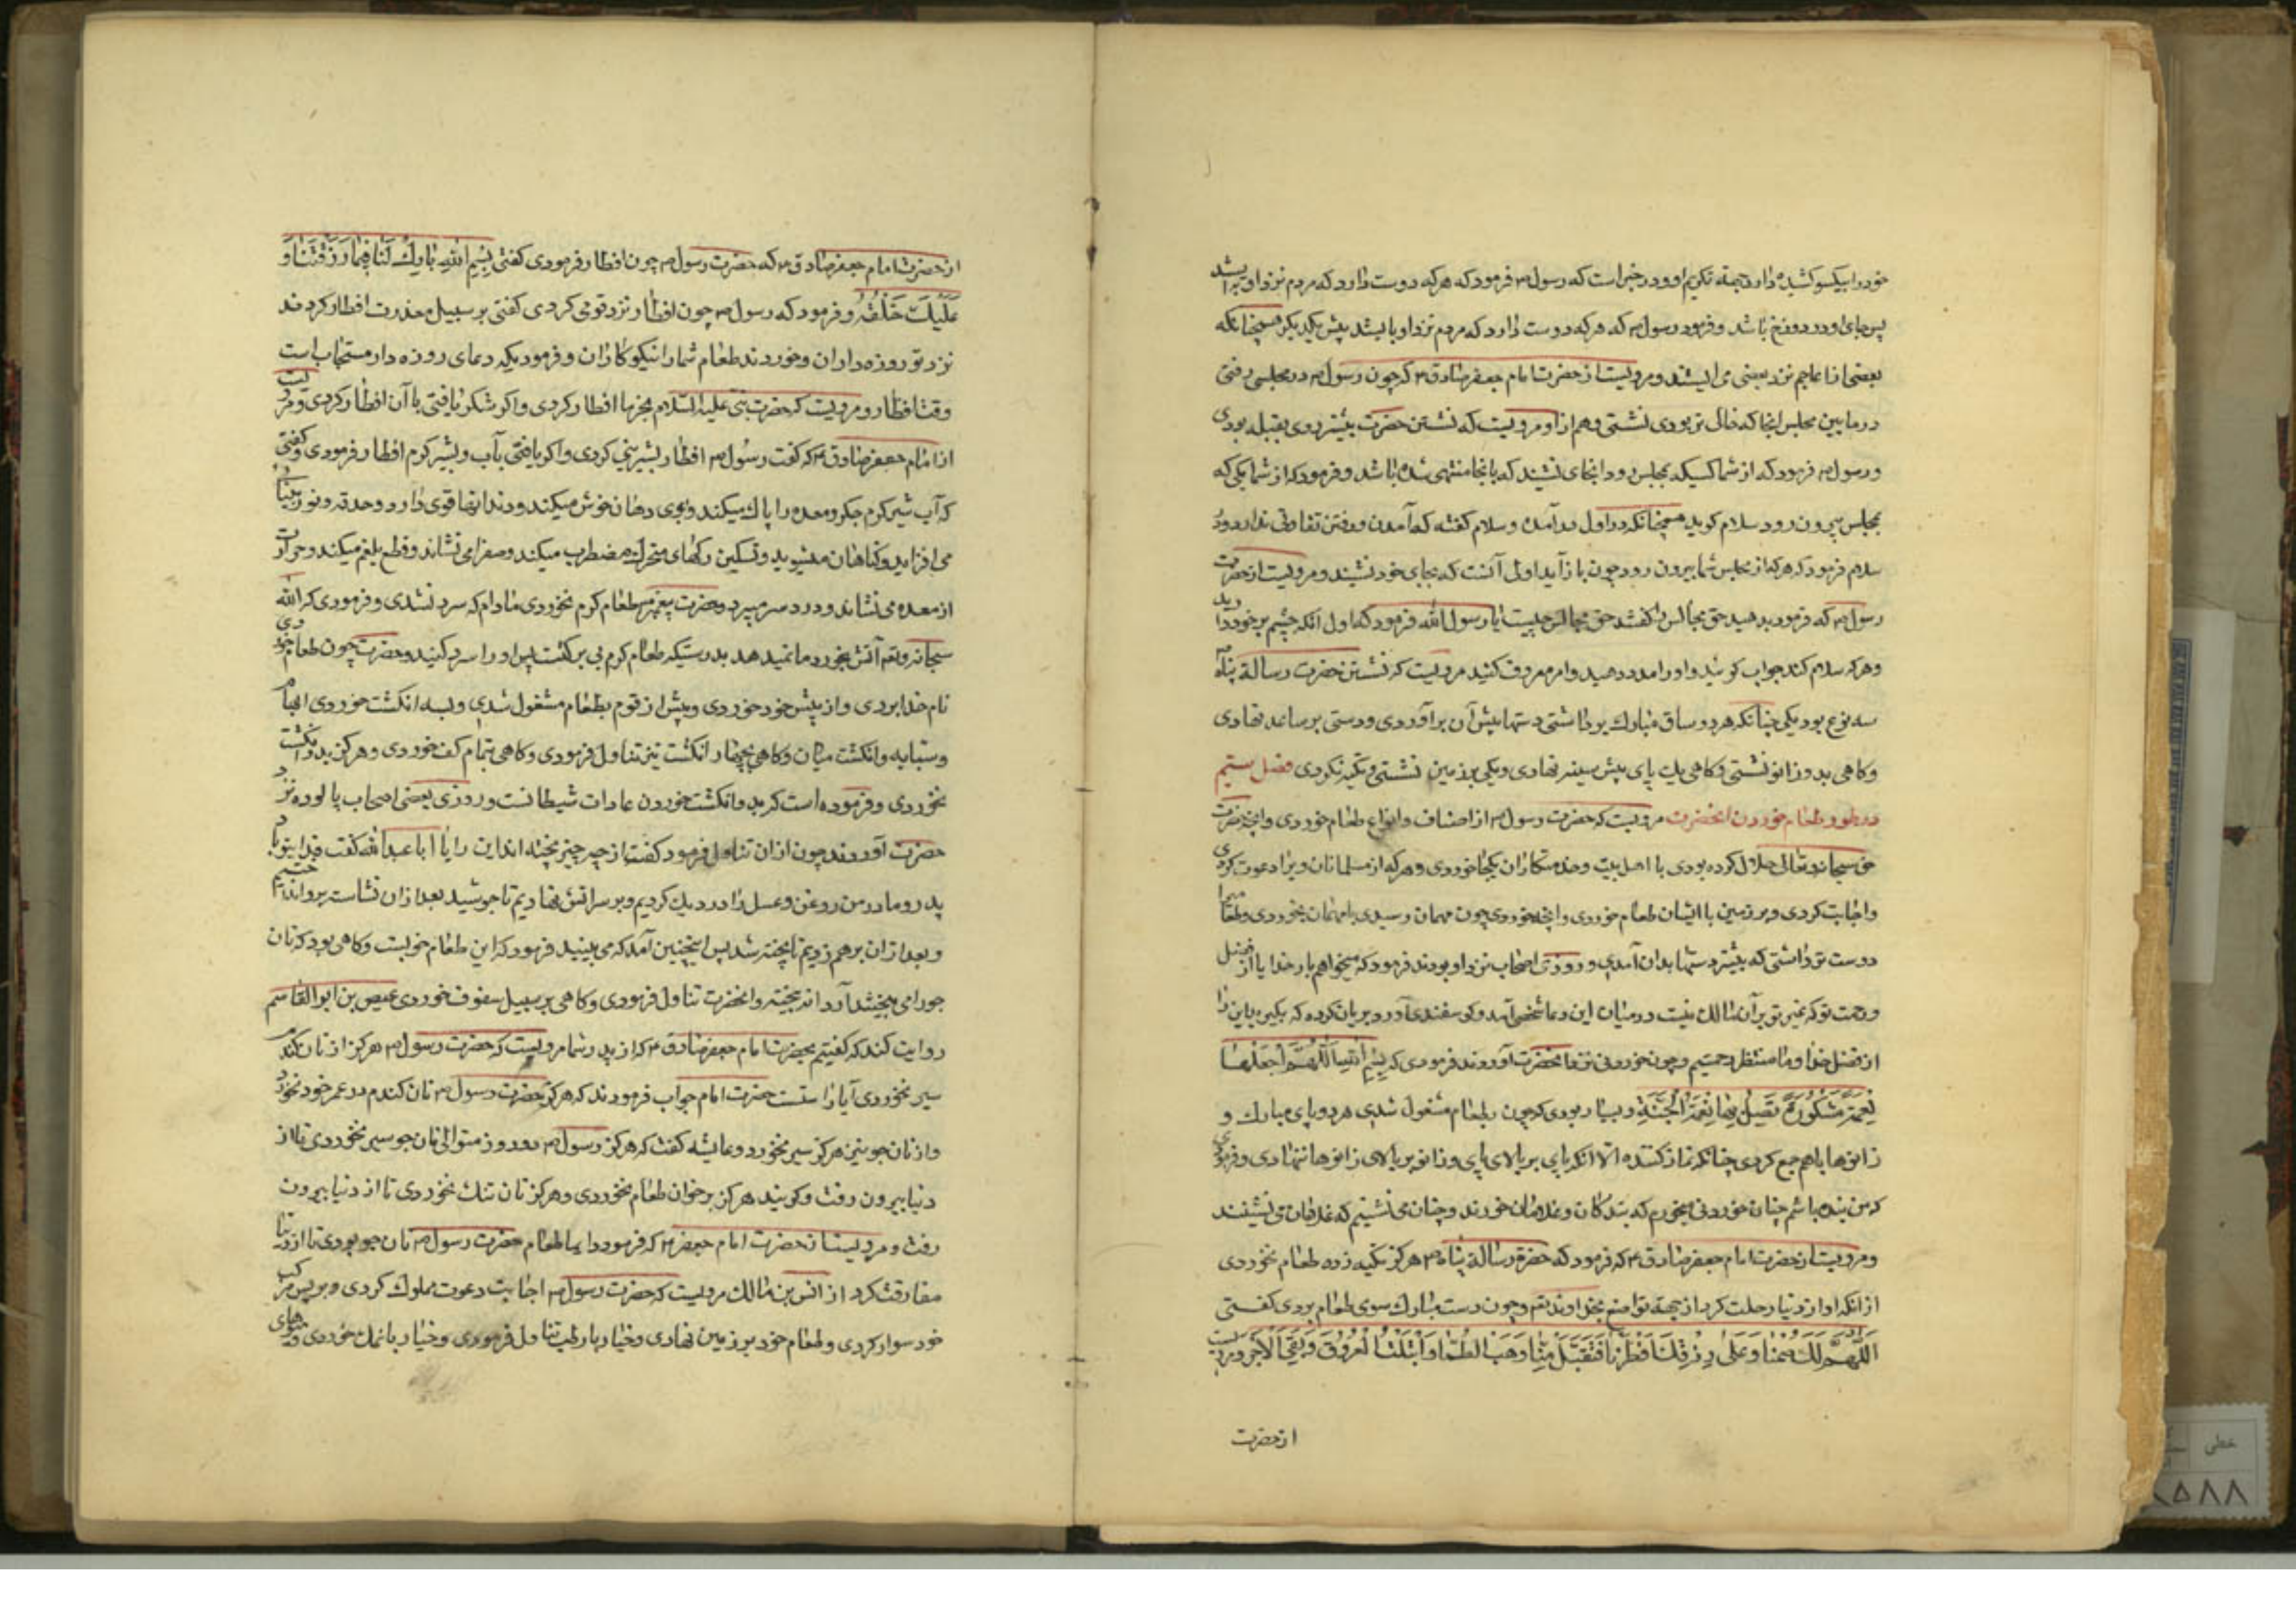 خود را بیکسو کشیده دارد بجهة تکریم او و در خبر است که رسول ص فرمود که هرکه دوست دارد که مردم نزد او برپا ایستد
پس جای او در دوزخ باشد و فرمود رسول ص که هرکه دوست دارد که مردم نزد او بایستد پیش یکدیگر همچنانکه
بعضی از اعاجم نزد بعضی می ایستند و مرویست از حضرت امام جعفر صادق ع که چون رسول ص در مجلسی رفتی
در مابین مجلس اینجا که خالی تر بودی نشستی و هم از او مرویست که نشستن حضرت بیشتر روی بقبله بودی
و رسول ص فرمود که از شما کسیکه بمجلس رود آنجای نشیند که بانجا منتهی شده باشد و فرمود که از شما یکی که
بمجلس بیرون رود سلام گوید همچنانکه در اول در آمده و سلام گفته که آمدن و رفتن تفاوتی ندارد و رد
سلام فرمود که هرکه از مجلس شما بیرون رود چون باز آید اولی آنست که بجای خود نشیند و مرویست از حضرت
رسول ص که فرمود بدهید حق مجالس را گفتند حق مجالس چیست یا رسول الله فرمود که اول انکه چشم بر خود دارید
و هرکه سلام کند جواب گوئید و او را مدد دهید و امر معروف کنید مرویست که نشستن حضرت رسالة پناه ص
سه نوع بود یکی چنانکه هر دو ساق مبارک برداشتی دستها پیش آن برآوردی و دستی بر ساعد نهادی
و کاهی بدو زانو نشستی و کاهی یک پای پیش سینه نهادی و یکی بر زمین نشستی و تکیه نکردی فصل بیستم
در طور طعام خوردن انحضرت مرویست که حضرت رسول ص از اصناف و انواع طعام خوردی و انچه حضرت
حق سبحانه و تعالی حلال کرده بودی با اهل بیت و خدمتکاران یکجا خوردی و هرکه از مسلمانان ویرا دعوت کردی
و اجابت کردی و بر زمین با ایشان طعام خوردی و انچه خوردی چون مهمان رسیدی با مهمان بخوردی و طعامیرا
دوست تر داشتی که بیشتر دستها بدان آمدی و روزی اصحاب نزد او بودند فرمود که میخواهم بار خدایا از فضل
و رحمت تو که غیر تو بر آن مالک نیست در میان این دعا شخصی آمد و گوسفندی آورد بریان کرده که بکیر یا این را
از فضل خدا و ما منتظر رحمتیم و چون خوردنی نزد انحضرت آوردند فرمودی که بِسْمِ اللّٰهِ اَللّٰهُمَّ اجْعَلْهَا
نِعْمَةً مَشْكُورَةً تَصِلُ بِهَا نِعْمَةَ الْجَنَّةِ و بسیار بودی که چون بطعام مشغول شدی هر دو پای مبارک و
زانوها باهم جمع کردی چنانکه نماز کننده الا انکه پای بر بالای پای و زانو بر بالای زانوها ننهادی و فرمودی
که من بنده باشم چنان خوردنی میخورم که بندکان و غلامان خورند و چنان می نشینم که غلامان می نشینند
و مرویست از حضرت امام جعفر صادق ع که فرمود که حضرة رسالة پناه ص هرکز تکیه زده طعام نخوردی
از انکه او از دنیا رحلت کرد از جهة تواضع بخداوند تعم و چون دست مبارک سوی طعام بردی کفتی
اَللّٰهُمَّ لَكَ صُمْنَا وَعَلَى رِزْقِكَ اَفْطَرْنَا فَتَقَبَّلْ مِنَّا وَهَبَ الظَّمَأُ وَابْتَلَّتِ الْعُرُوقُ وَبَقِيَ الْاَجْرُ و مرویست
از حضرت
از حضرت امام جعفر صادق ع که حضرت رسول ص چون افطار فرمودی کفتی بِسْمِ اللهِ بَارِكْ لَنَا فِيمَا رَزَقْتَنَا وَ
عَلَيْكَ خَلَفُهُ و فرمود که رسول ص چون افطار نزد قومی کردی کفتی بر سبیل معذرت افطار کردند
نزد تو روزه داران و خوردند طعام شما را نیکوکاران و فرمود یکه دعای روزه دار مستجاب است
وقت افطار و مرویست که حضرت نبی علیه السلام بخرما افطار کردی و اکر شکر یافتی با آن افطار کردی و مرویست
از امام جعفر صادق ع که کفت رسول ص افطار بشیرینی کردی و اکر نیافتی بآب و بشیر کرم افطار فرمودی و کفتی
که آب شیر کرم جکر و معده را پاک میکند و بوی دهان خوش میکند و دندانها قوی دارد و حدقه و نور بینائی
می افزاید و کناهان میشوید و تسکین رکهای متحرک مضطرب میکند و صفرا می نشاند و قطع بلغم میکند و حرارت
از معده می نشاند و درد سر میبرد و حضرت پیغمبر ص طعام کرم نخوردی مادام که سرد نشدی و فرمودی که الله
سبحانه و تعم آتش بخورد ما نمیدهد بدرستیکه طعام کرم بی برکتست پس او را سرد کنید و حضرت چون طعام خوردی
نام خدا بردی و از پیش خود خوردی و پیش از قوم بطعام مشغول شدی و بسه انکشت خوردی ابهام
و سبابه و انکشت میان و کاهی بچهار انکشت نیز تناول فرمودی و کاهی بتمام کف خوردی و هرکز بدو انکشت
نخوردی و فرموده است که بدو انکشت خوردن عادات شیطانست و روزی بعضی اصحاب پالوده نزد
حضرت آوردند چون از ان تناول فرمود کفت از چه چیز پخته اند این را یا ابا عبدالله کفت فدای تو باد
پدر و مادر من روغن و عسل را در دیک کردیم و بر سر اتش نهادیم تا جوشید بعد از ان نشاسته بر و انداختیم
و بعد از ان برهم زدیم تا پخته شد پس اینچنین آمد که می بینید فرمود که این طعام خوبست و کاهی بود که نان
جو را می پختند آرد نه بیخته و انحضرت تناول فرمودی و کاهی بر سبیل سفوف خوردی عیص بن ابو القاسم
روایت کند که کفتیم بحضرت امام جعفر صادق ع که از پدر شما مرویست که حضرت رسول ص هرکز از نان کندم
سیر نخوردی آیا راستست حضرت امام جواب فرمودند که هرکز حضرت رسول ص نان کندم در عمر خود نخورد
و از نان جوین هرکز سیر نخورد و عایشه کفت که هرکز رسول ص دو روز متوالی نان جو سیر نخوردی تا از
دنیا بیرون رفت و کویند هرکز بر خوان طعام نخوردی و هرکز نان تنک نخوردی تا از دنیا بیرون
رفت و مرویست از حضرت امام جعفر ع که فرمود دایما طعام حضرت رسول ص نان جو بودی تا از دنیا
مفارقت کرد از انس بن مالک مرویست که حضرت رسول ص اجابت دعوت مملوک کردی و بر پس مرکب
خود سوار کردی و طعام خود بر زمین نهادی و خیار با رطب تناول فرمودی و خیار با نمک خوردی و میوهای
خطی
۸۵۸۸